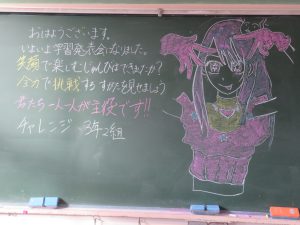 おはようございます。
いよいよ学習発表会になりました。
笑顔で楽しむじゅんびはできたか？
全力で挑戦するすがたを見せましょう
君たち一人一人が主役です!!
チャレンジ 3年2組